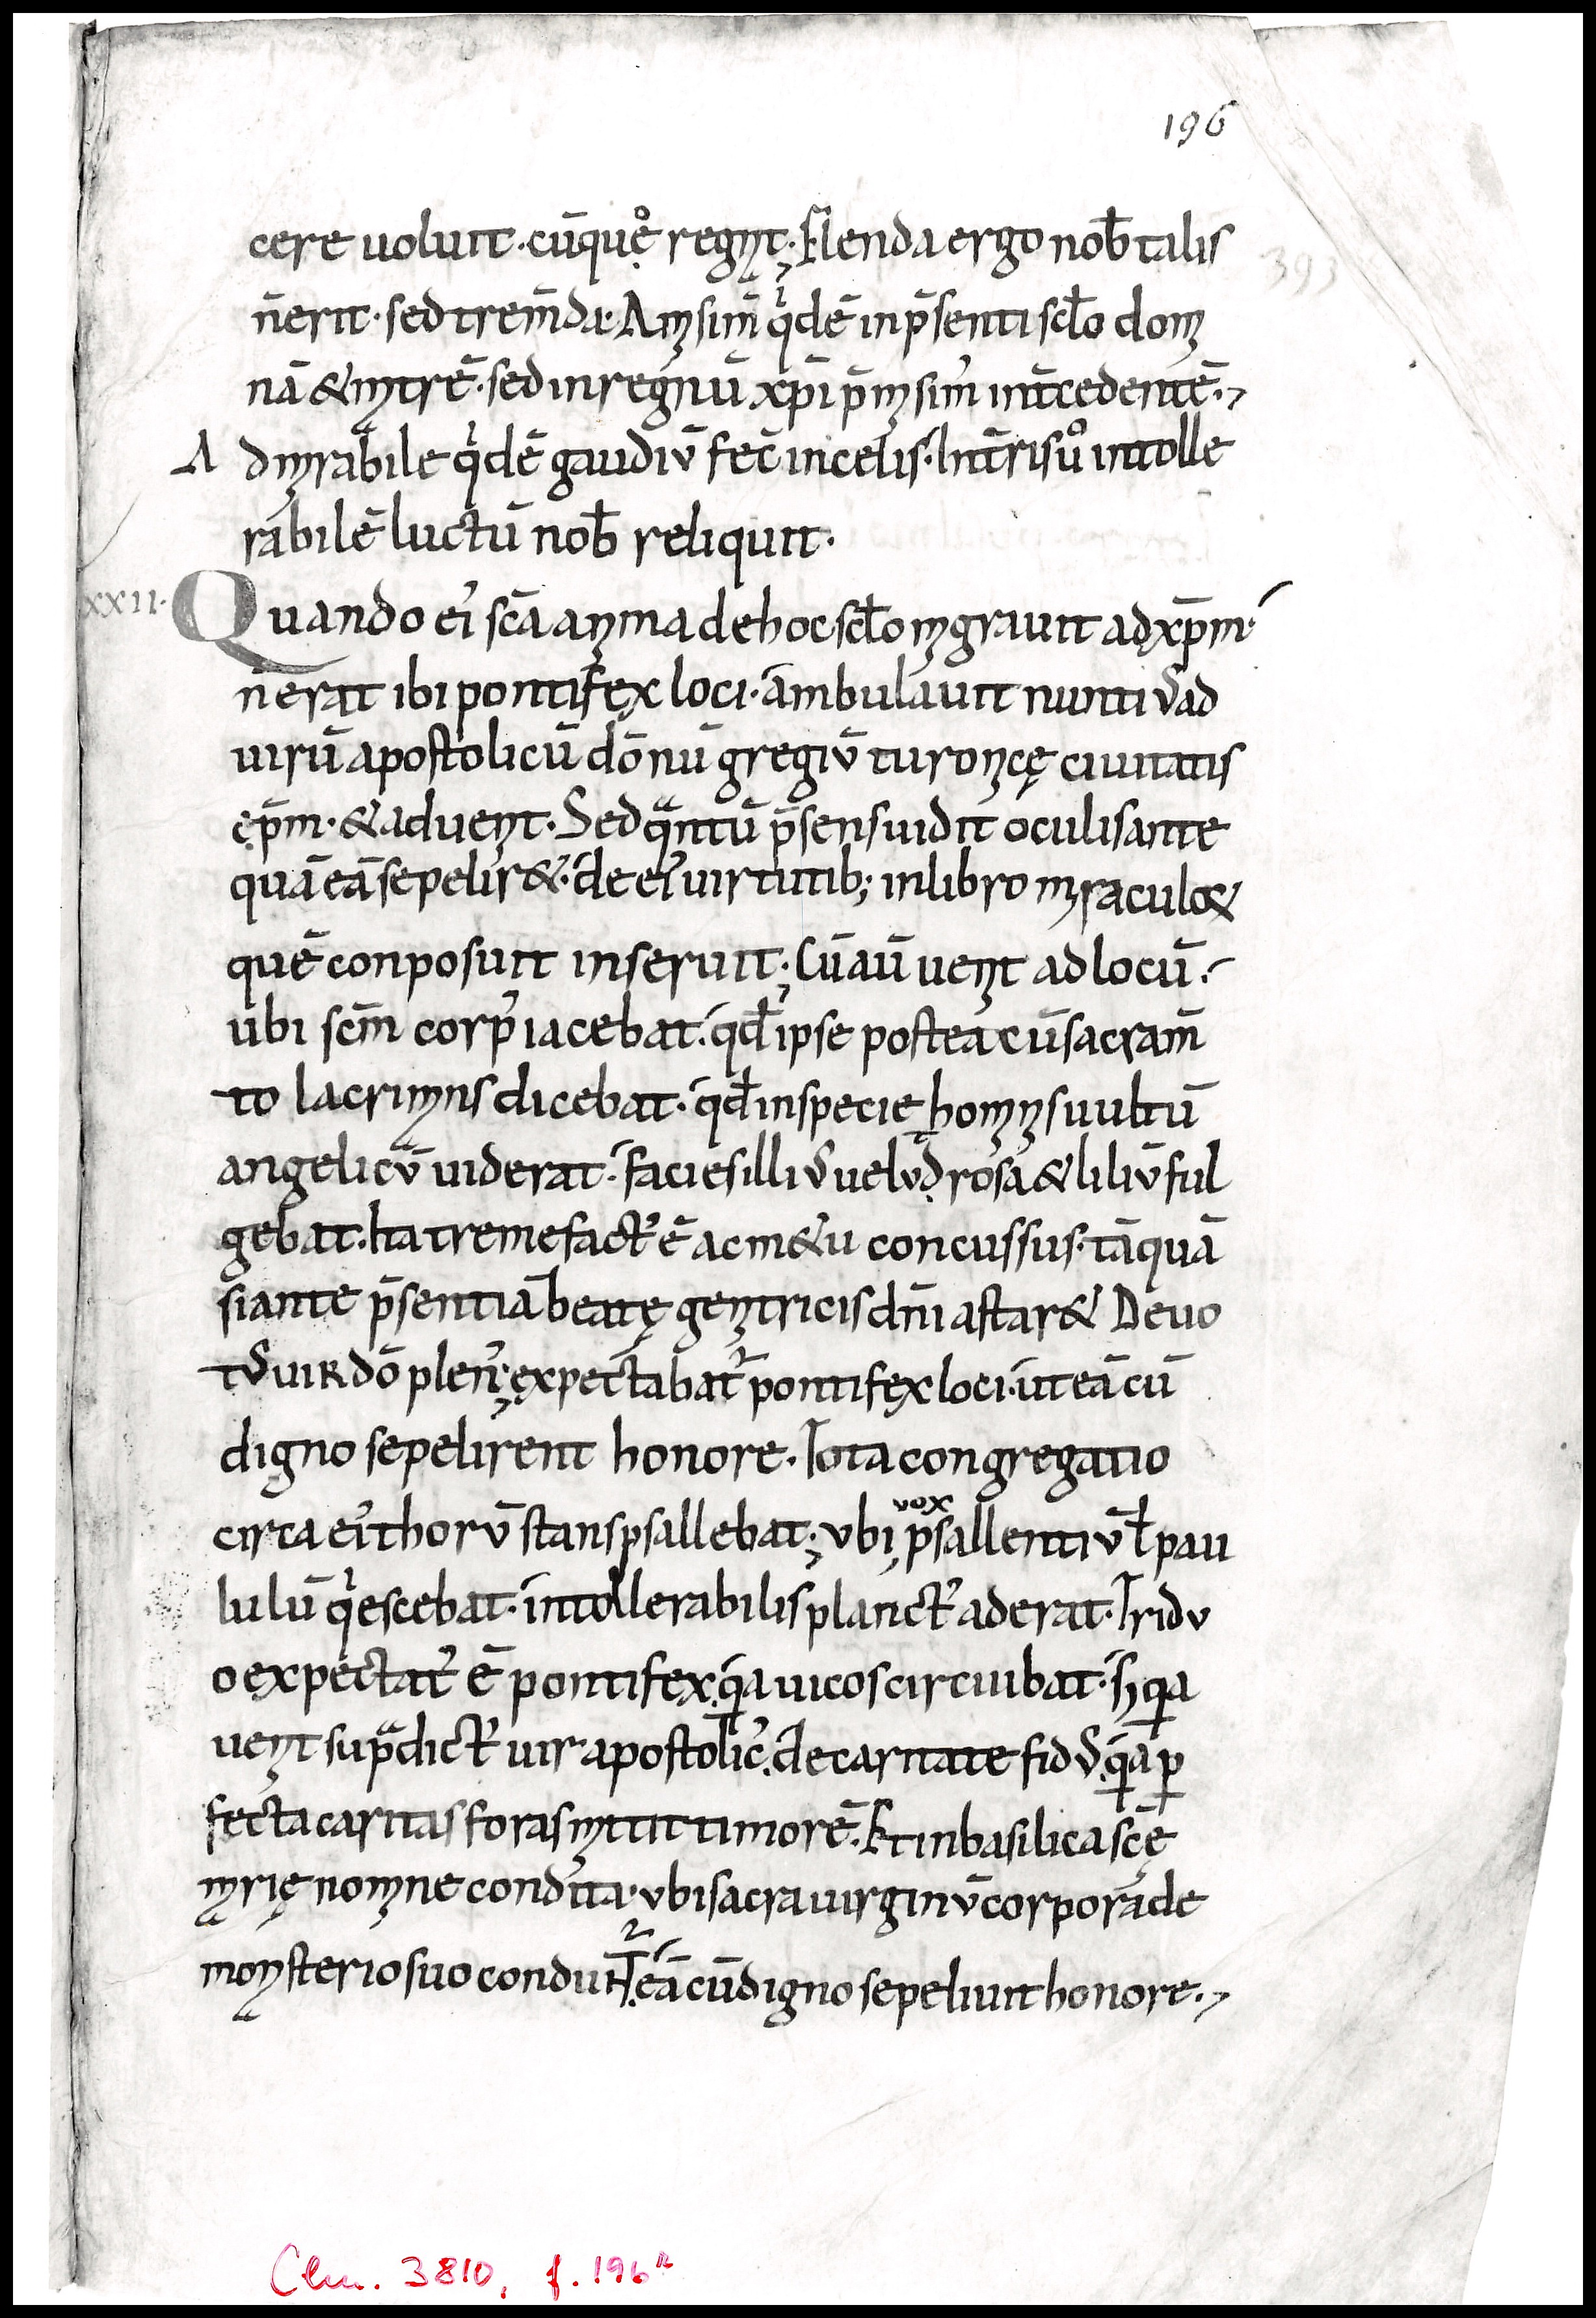 196
cere uoluit. cūque᷒ regnt; Flenda ergo nob̄ talis
n̄erit. sed trem̄da. Amisim̄ qͥdē inp̄senti scl̄o domi
nā & mtrē. sed inregnū xp̄i p̄misim' int̄cedentē.
393
A dmirabile qͥdē gaudiū fec̄ incelis. Int̄risuͦ intolle
rabilē luctū nob̄ reliquit.
XXII. Quando ei' scā anima dehoc scl̄o migrauit ad xp̄m.
n̄erat ibi pontifex loci. ambulauit nunti' ad
uirū apostolicū dōnū gregiū turonicę ciuitatis
ep̄m. & aduenit. Sed qͣntū p̄sens uidit oculis ante
quā eā sepelir&. de ei' uirtutib; inlibro miraculo&
quē conposuit inseruit; Cū aū uenit ad locū.
ubi scm̄ corp' iacebat. qd̄ ipse postea cū sacram̄
to lacrimans dicebat. qd̄ inspecie hominis uultū
angelicū uiderat. facies illi' uelud rosa & liliū ful
gebat. Ita tremefact' ē ac m&u concussus. tāquā
siante p̄sentiā beatę genitricis dn̄i astar& Deuo
t' uir dō plen'; expectabat᷒ pontifex loci. ut eā cū
digno sepelirent honore. Tota congregatio
circa ei' thorū stans psallebat; ubi vox psallentiū l̄ pau
lulū qͥescebat. intollerabilis planct' aderat. Tridu
o expectat' ē pontifex. qͣa uicos circuibat. Hqa
uenit supͣdict' uir apostolic'. de caritate fid'. qa p
fecta caritas foras mittit timorē. Et inbasilica scę
mrię nomine condita. ubi sacra uirginū corpora de
monisterio suo condunt᷒. eā cū digno sepeliuit honore.
Clm. 3810, f. 196r